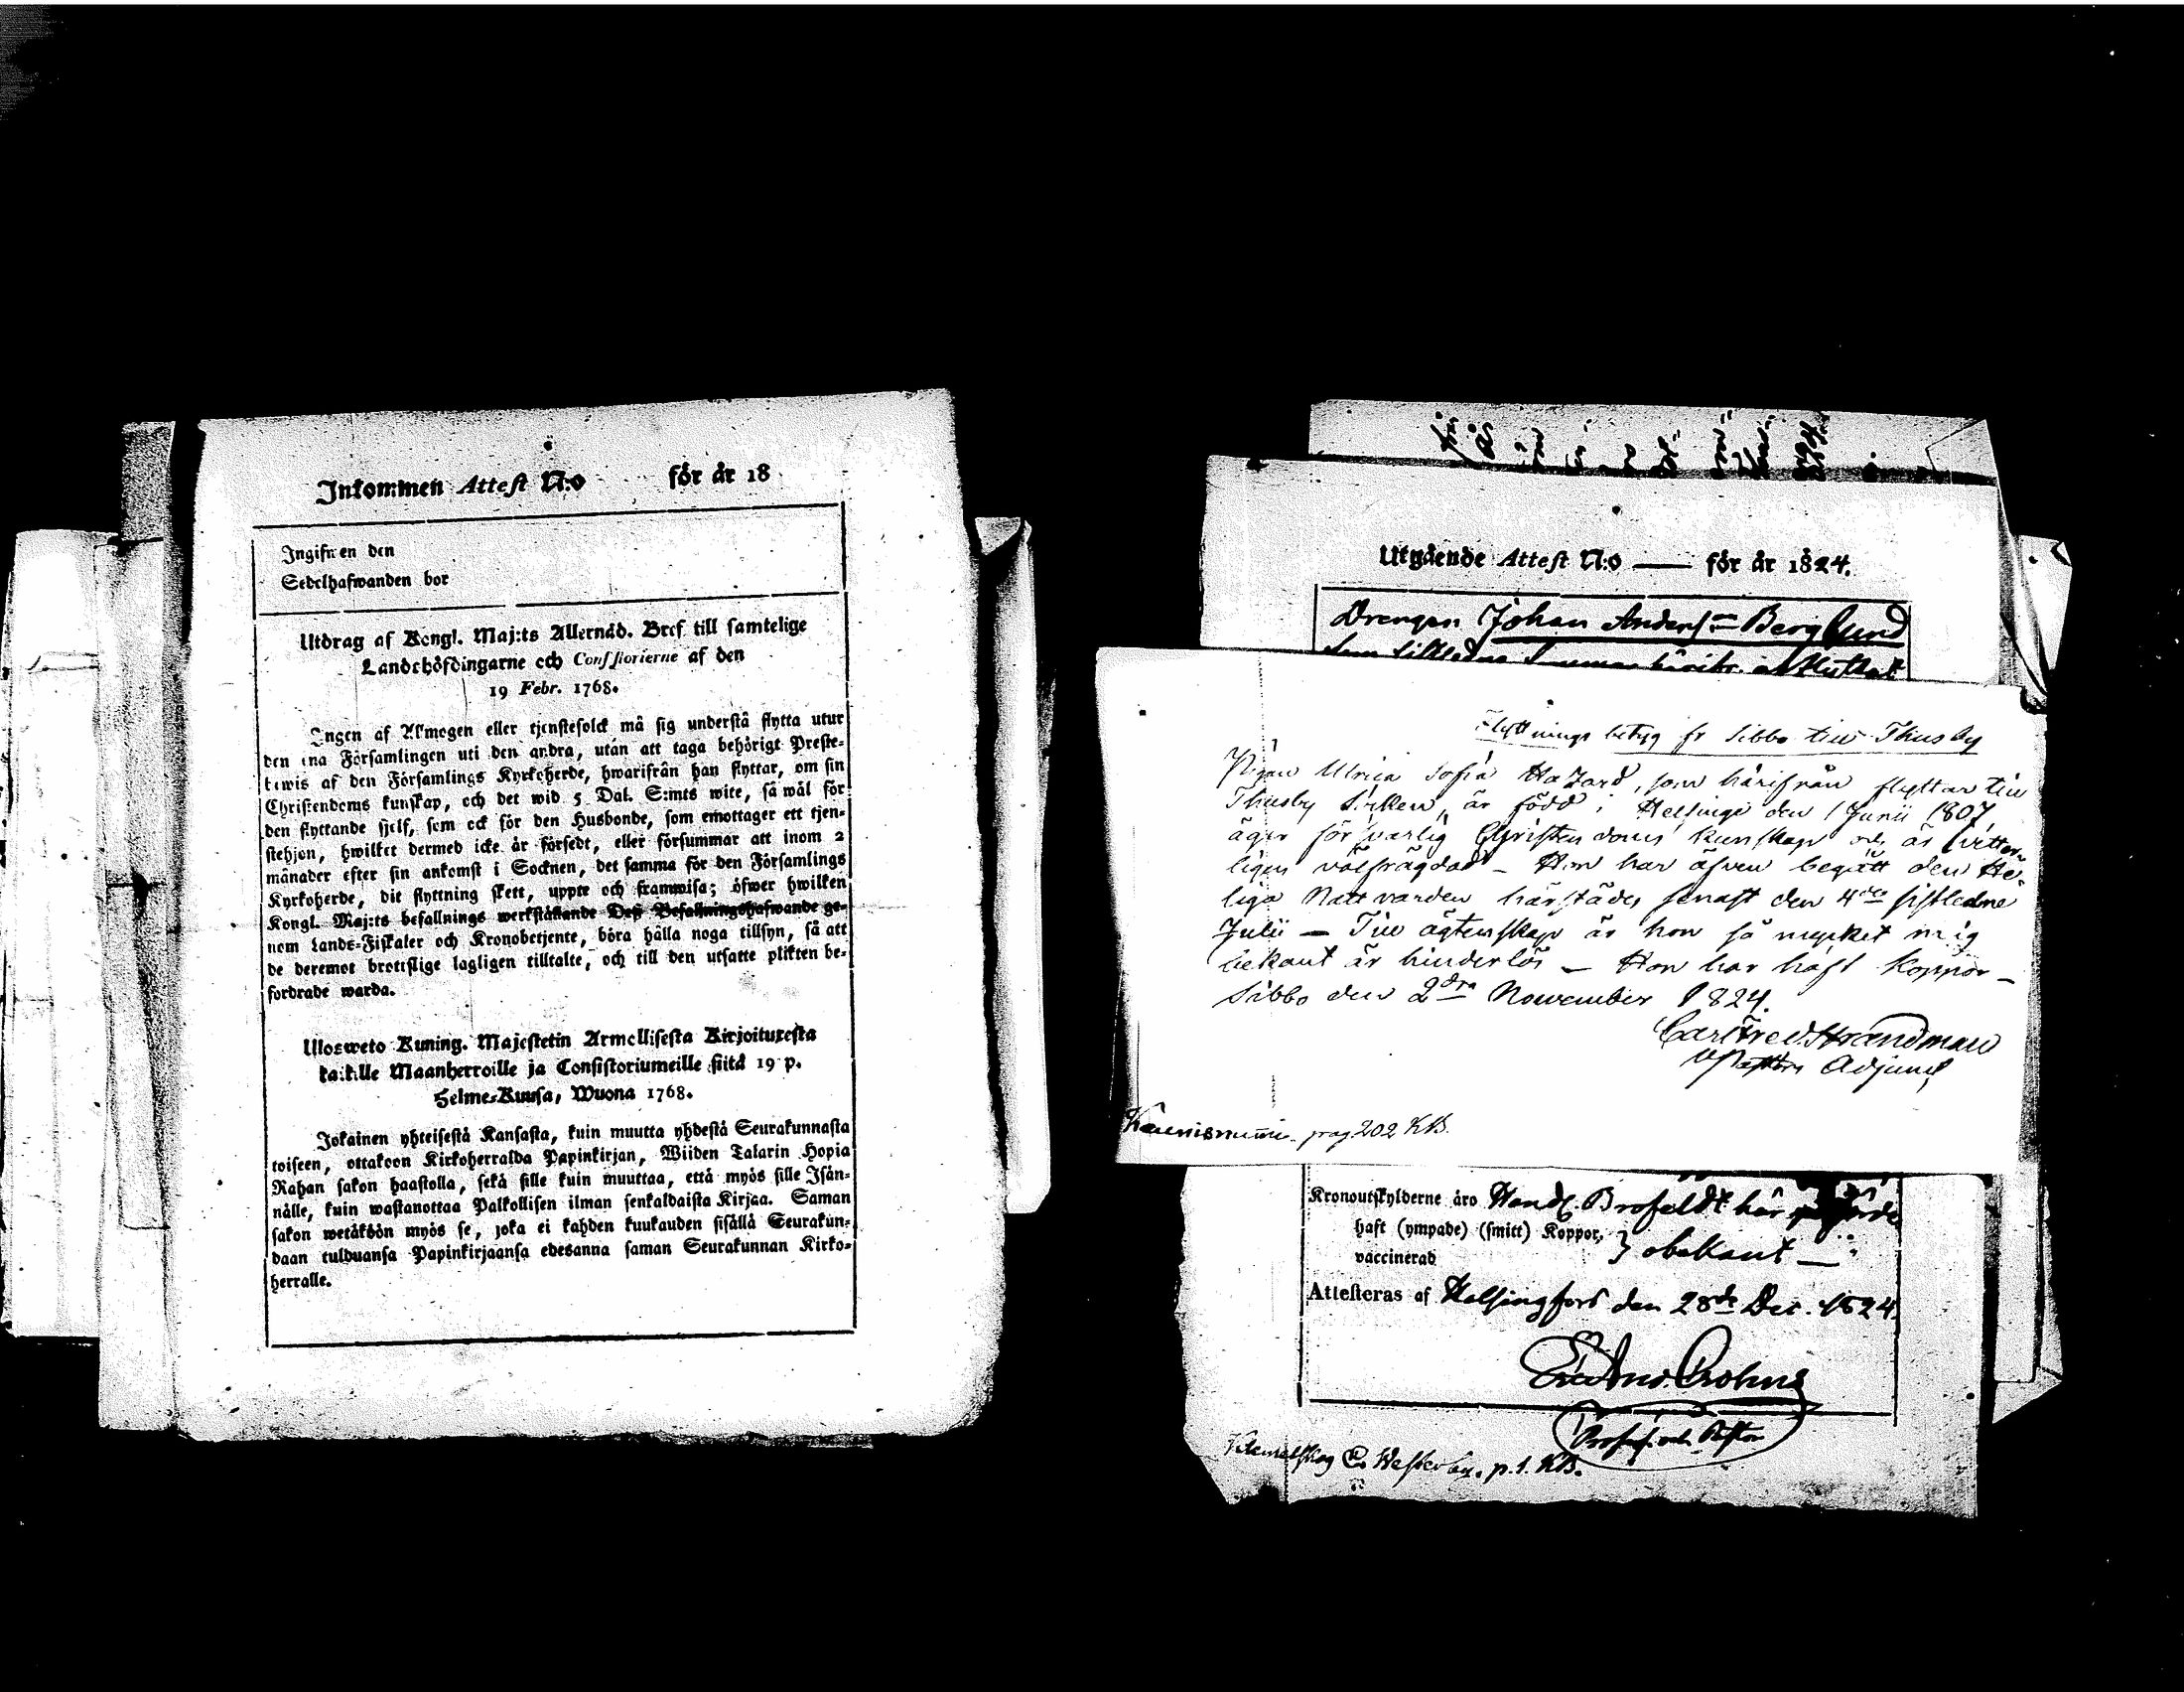 Inkommen Attest N:o för år 18
Ingifwen den
Sedelhafwanden bor
Utdrag af Kongl. Maj:ts Allernåd. Bref till samtelige
Landshöfdingarne och Consistorierne af den
19 Febr. 1768.
Ingen af Allmogen eller tjenstefolck må sig understå flytta utur
den ena Församlingen uti den andra, utan att taga behörigt Preste-
bewis af den Församlings Kyrkoherde, hwarifrån han flyttar, om sin
Christendoms kunskap, och det wid 5 Dal. S:mts wite, så wäl för
den flyttande sjelf, som ock för den Husbonde, som emottager ett tjen-
stehjon, hwilket dermed icke är försedt, eller försummar att inom 2
månader efter sin ankomst i Socknen, det samma för den Församlings
Kyrkoherde, dit flyttning skett, uppte och framwisa; öfwer hwilken
Kongl. Maj:ts befallnings werkställande Dess Befallningshafwande ge-
nom Lands-Fiskaler och Kronobetjente, böra hålla noga tillsyn, så att
de deremot brottslige lagligen tilltalte, och till den utsatte plikten be-
fordrade warda.
Ulosweto Kuning. Majestetin Armollisesta Kirjoituxesta
kaikille Maanherroille ja Consistoriumeille siitä 19 p.
Helme-Kuusa, Wuona 1768.
Jokainen yhteisestä Kansasta, kuin muutta yhdestä Seurakunnasta
toiseen, ottakoon Kirkoherralda Papinkirjan, Wiiden Talarin Hopia
Rahan sakon haastolla, sekä sille kuin muuttaa, että myös sille Isän-
nälle, kuin wastanottaa Palkollisen ilman senkaldaista Kirjaa. Saman
sakon wetäköön myös se, joka ei kahden kuukauden sisällä Seurakun-
daan tulduansa Papinkirjaansa edesanna saman Seurakunnan Kirko-
herralle.
Utgående Attest N:o — för år 1824.
Drengen Johan Anders Berglund
som sistledne Sommar härifr. afflyttat
Flyttnings betyg fr Sibbo till Thusby
Pigan Ulrica Sofia Hazard, som härifrån flyttar till
Thusby Socken, är född i Helsinge den 1 Junii 1807,
äger försvarlig Christendoms kunskap och är vitter-
ligen välfrägdad – Hon har äfven begått den He-
liga Nattvarden härstädes senast den 4de sistledne
Julii – Till ägtenskap är hon så mycket mig
bekant är hinderlös – Hon har haft Koppor –
Sibbo den 2dra November 1824.
Carl Fred. Strandman
V Pastors Adjunct
pag 202 KB.
Kronoutskylderne äro Handl. Brofeldt här
haft (ympade) (smitt) Koppor,
vaccinerad } obekant —
Attesteras af Helsingfors den 28de Dec. 1824.
Profess. och Pastor
Westerby. p. 1. KB.